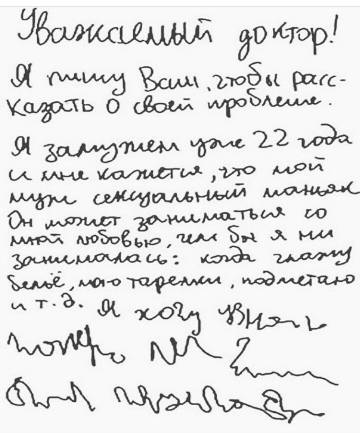 Уважаемый доктор!
Я пишу Вам, чтобы расс-
казать о своей проблеме.
Я замужем уже 22 года
и мне кажется, что мой
муж сексуальный маньяк
Он может заниматься со
мной любовью, чем бы я ни
занималась: когда глажу
бельё, мою тарелки, подметаю
и т.д. Я хочу